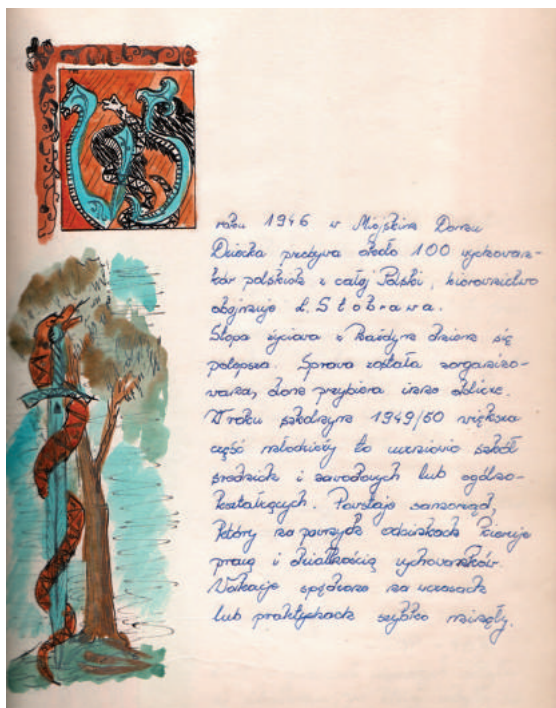 W
roku 1946 w Miejskim Domu
Dziecka przebywa około 100 wychowan-
ków polskich z całej Polski, kierownictwo
obejmuje L. Stobrawa.
Stopa życiowa z każdym dniem się
polepsza. Sprawa została zorganizo-
wana, dom przybiera inne oblicze.
W roku szkolnym 1949/50 większa
część młodzieży to uczniowie szkół
średnich i zawodowych lub ogólno-
kształcących. Powstaje samorząd,
który na pewnych odcinkach kieruje
pracą i działkością wychowanków.
Wakacje spędzono na wczasach
lub praktykach szybko minęły.